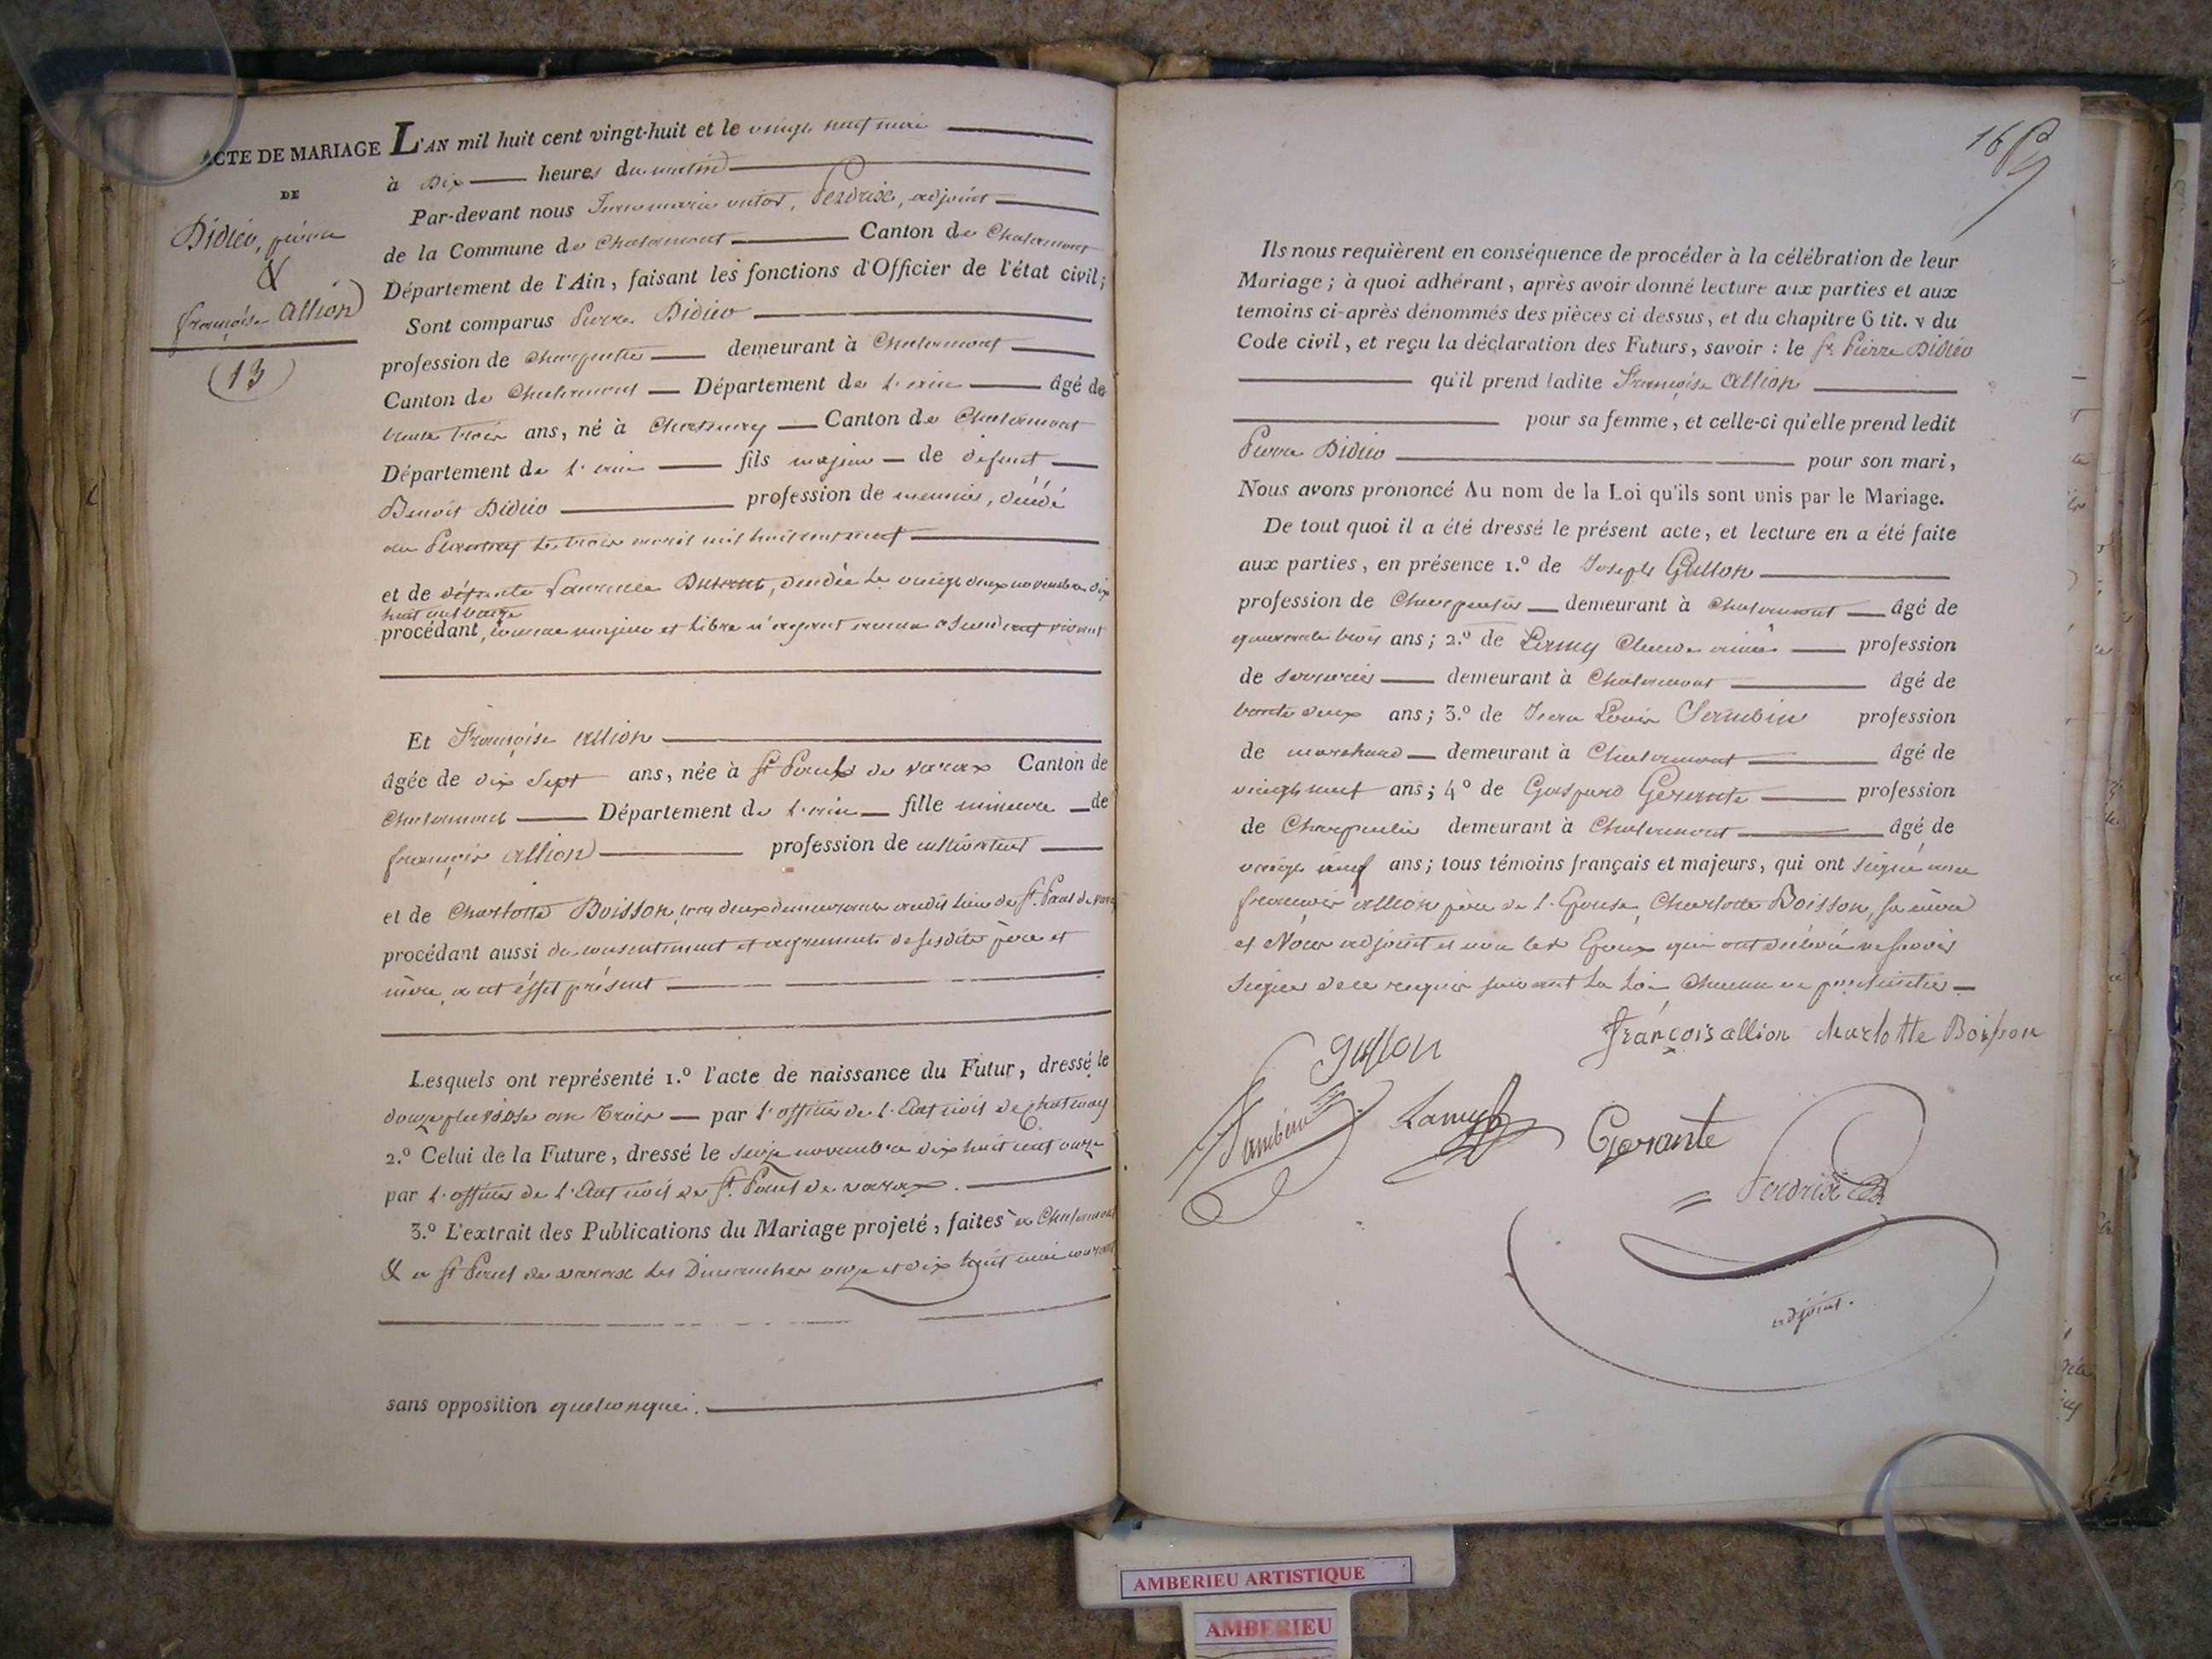 ACTE DE MARIAGE
DE
Didier, pierre
&
françoise Allion
(13)
L'AN mil huit cent vingt-huit et le vingt neuf mai
à dix heures du matin
Par-devant nous victor, Perdrix, adjoint
de la Commune de Chalamont Canton de Chalamont
Département de l'Ain, faisant les fonctions d'Officier de l'état civil;
Sont comparus Pierre Didier
profession de charpentier demeurant à Chalamont
Canton de Chalamont Département de l'ain âgé de
trente trois ans, né à Chatenay Canton de Chalamont
Département de l'ain fils majeur de défunt
Benoit Didier profession de meunier, décédé
au le trois mil huit cent neuf
et de défunte décédée le vingt deux novembre dix
huit cent treize
procédant, comme majeur et libre n'ayant aucun ascendant vivant
Et Françoise Allion
âgée de dix sept ans, née à St Paul de varax Canton de
Chalamont Département de l'ain fille mineure de
françois allion profession de cultivateur
et de Charlotte Boisson, tous deux demeurant audit lieu de St. Paul de varax
procédant aussi du consentement et agrément de sesdits père et
mère, a cet éffet présent
Lesquels ont représenté 1.º l'acte de naissance du Futur, dressé le
douze pluviôse an trois par l'officier de l'Etat civil de Chatenay
2.º Celui de la Future, dressé le seize novembre dix huit cent onze
par l'officier de l'Etat civil de St. Paul de varax.
3.º L'extrait des Publications du Mariage projeté, faites à Chalamont
& a St Paul de varax les Dimanches onze et dix huit mai courant
sans opposition quelconque.
Ils nous requièrent en conséquence de procéder à la célébration de leur
Mariage; à quoi adhérant, après avoir donné lecture aux parties et aux
temoins ci-après dénommés des pièces ci dessus, et du chapitre 6 tit. v du
Code civil, et reçu la déclaration des Futurs, savoir: le sr. Pierre Didier
qu'il prend ladite Françoise Allion
pour sa femme, et celle-ci qu'elle prend ledit
Pierre Didier pour son mari,
Nous avons prononcé Au nom de la Loi qu'ils sont unis par le Mariage.
De tout quoi il a été dressé le présent acte, et lecture en a été faite
aux parties, en présence 1.º de Joseph Guillon
profession de Charpentier demeurant à Chalamont âgé de
quarante trois ans; 2.º de Lamy Claude aimé profession
de serrurier demeurant à Chalamont âgé de
trente deux ans; 3.º de Jean Louis profession
de marchand demeurant à Chalamont âgé de
vingt neuf ans; 4º de Gaspard Gerante profession
de Charpentier demeurant à Chalamont âgé de
vingt neuf ans; tous témoins français et majeurs, qui ont signé avec
françois allion père de l'Epouse, Charlotte Boisson, sa mère
et Nous adjoint et non les Epoux qui ont déclaré ne savoir
signer de ce requis suivant la loi
françois allion charlotte Boisson
guillon
Lamy
Gerante
Perdrix
adjoint.
AMBERIEU ARTISTIQUE
AMBERIEU